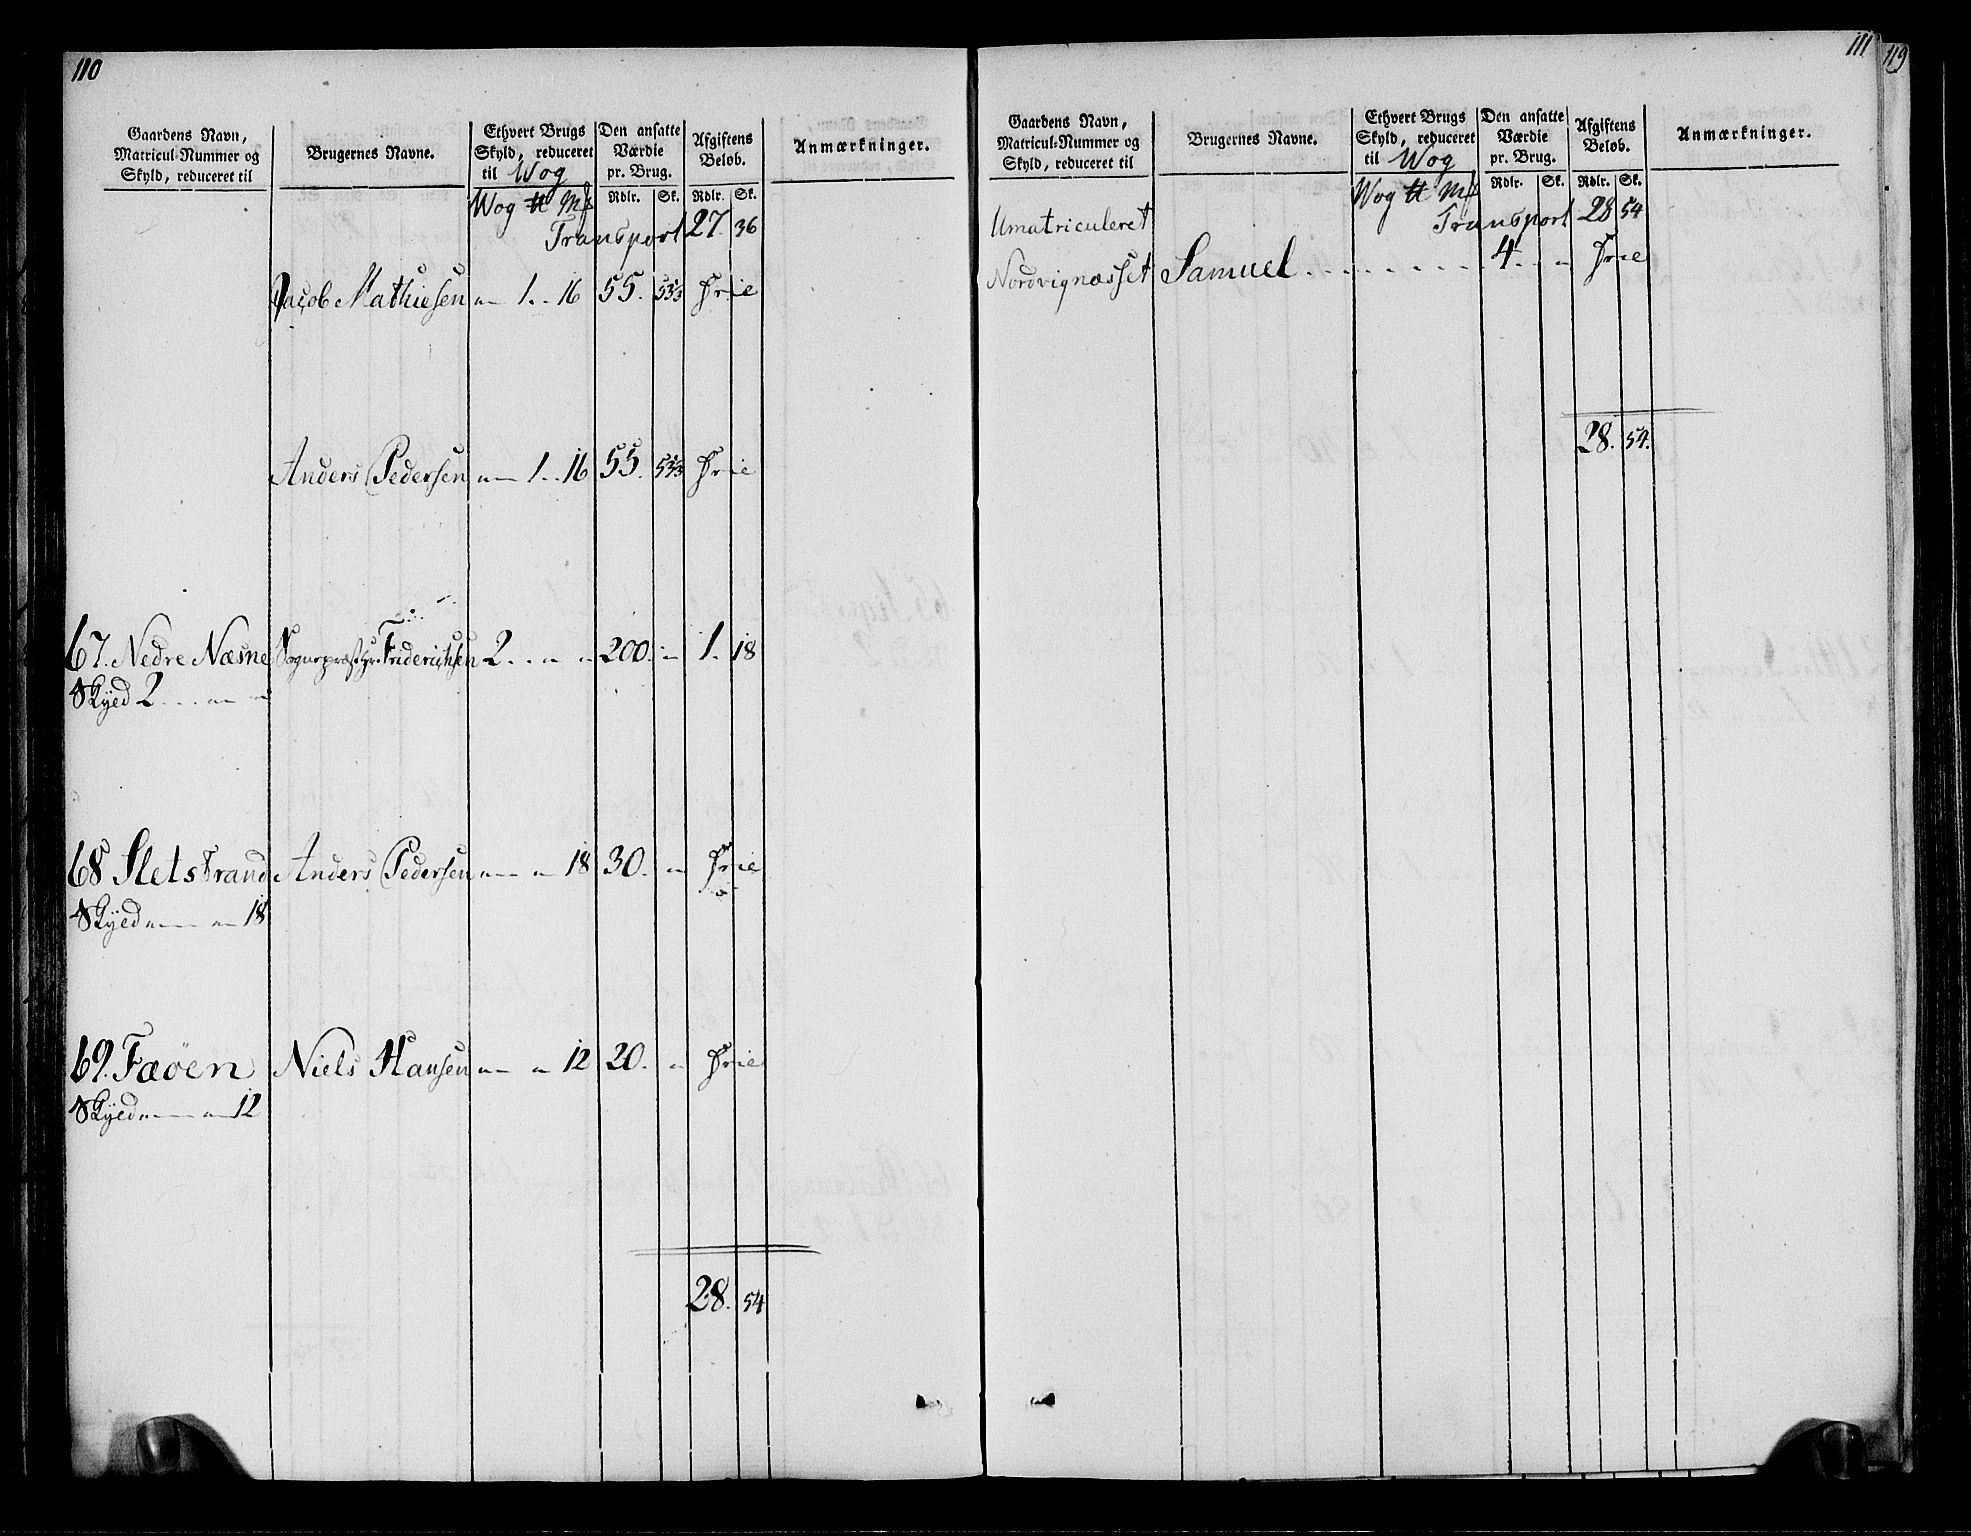 110
Gaardens Navn, Matricul-Nummer og Skyld, reduceret til
Brugernes Navne.
Ethvert Brugs Skyld, reduceret til Wog
Den ansatte Værdie pr. Brug.
Afgiftens Beløb.
Anmærkninger.
Wog ℔ Mk Rdlr. Sk. Rdlr. Sk.
Transport 27. 36
Jacob Mathiesen „ 1. „ 16 55. 53⅓ Frie
Anders Pedersen „ 1. „ 16 55. 53⅓ Frie
67. Nedre Næsne Sognepræst Hr. Friderichsen 2. „ „ 200. „ 1. 18
Skyed 2 . . . „ „
68 Sletstrand Anders Pedersen „ „ 18 30. „ Frie
Skyed „ „ 18
69. Faøen Niels Hansen „ „ 12 20. „ Frie
Skyed „ „ 12
28. 54
111
119
Gaardens Navn, Matricul-Nummer og Skyld, reduceret til
Brugernes Navne.
Ethvert Brugs Skyld, reduceret til Wog
Den ansatte Værdie pr. Brug.
Afgiftens Beløb.
Anmærkninger.
Wog ℔ Mk Rdlr. Sk. Rdlr. Sk.
Transport 28 54
Umatriculeret
Nordvignæsset Samuel . . . . . . . . 4. . „ Frie
28. 54.